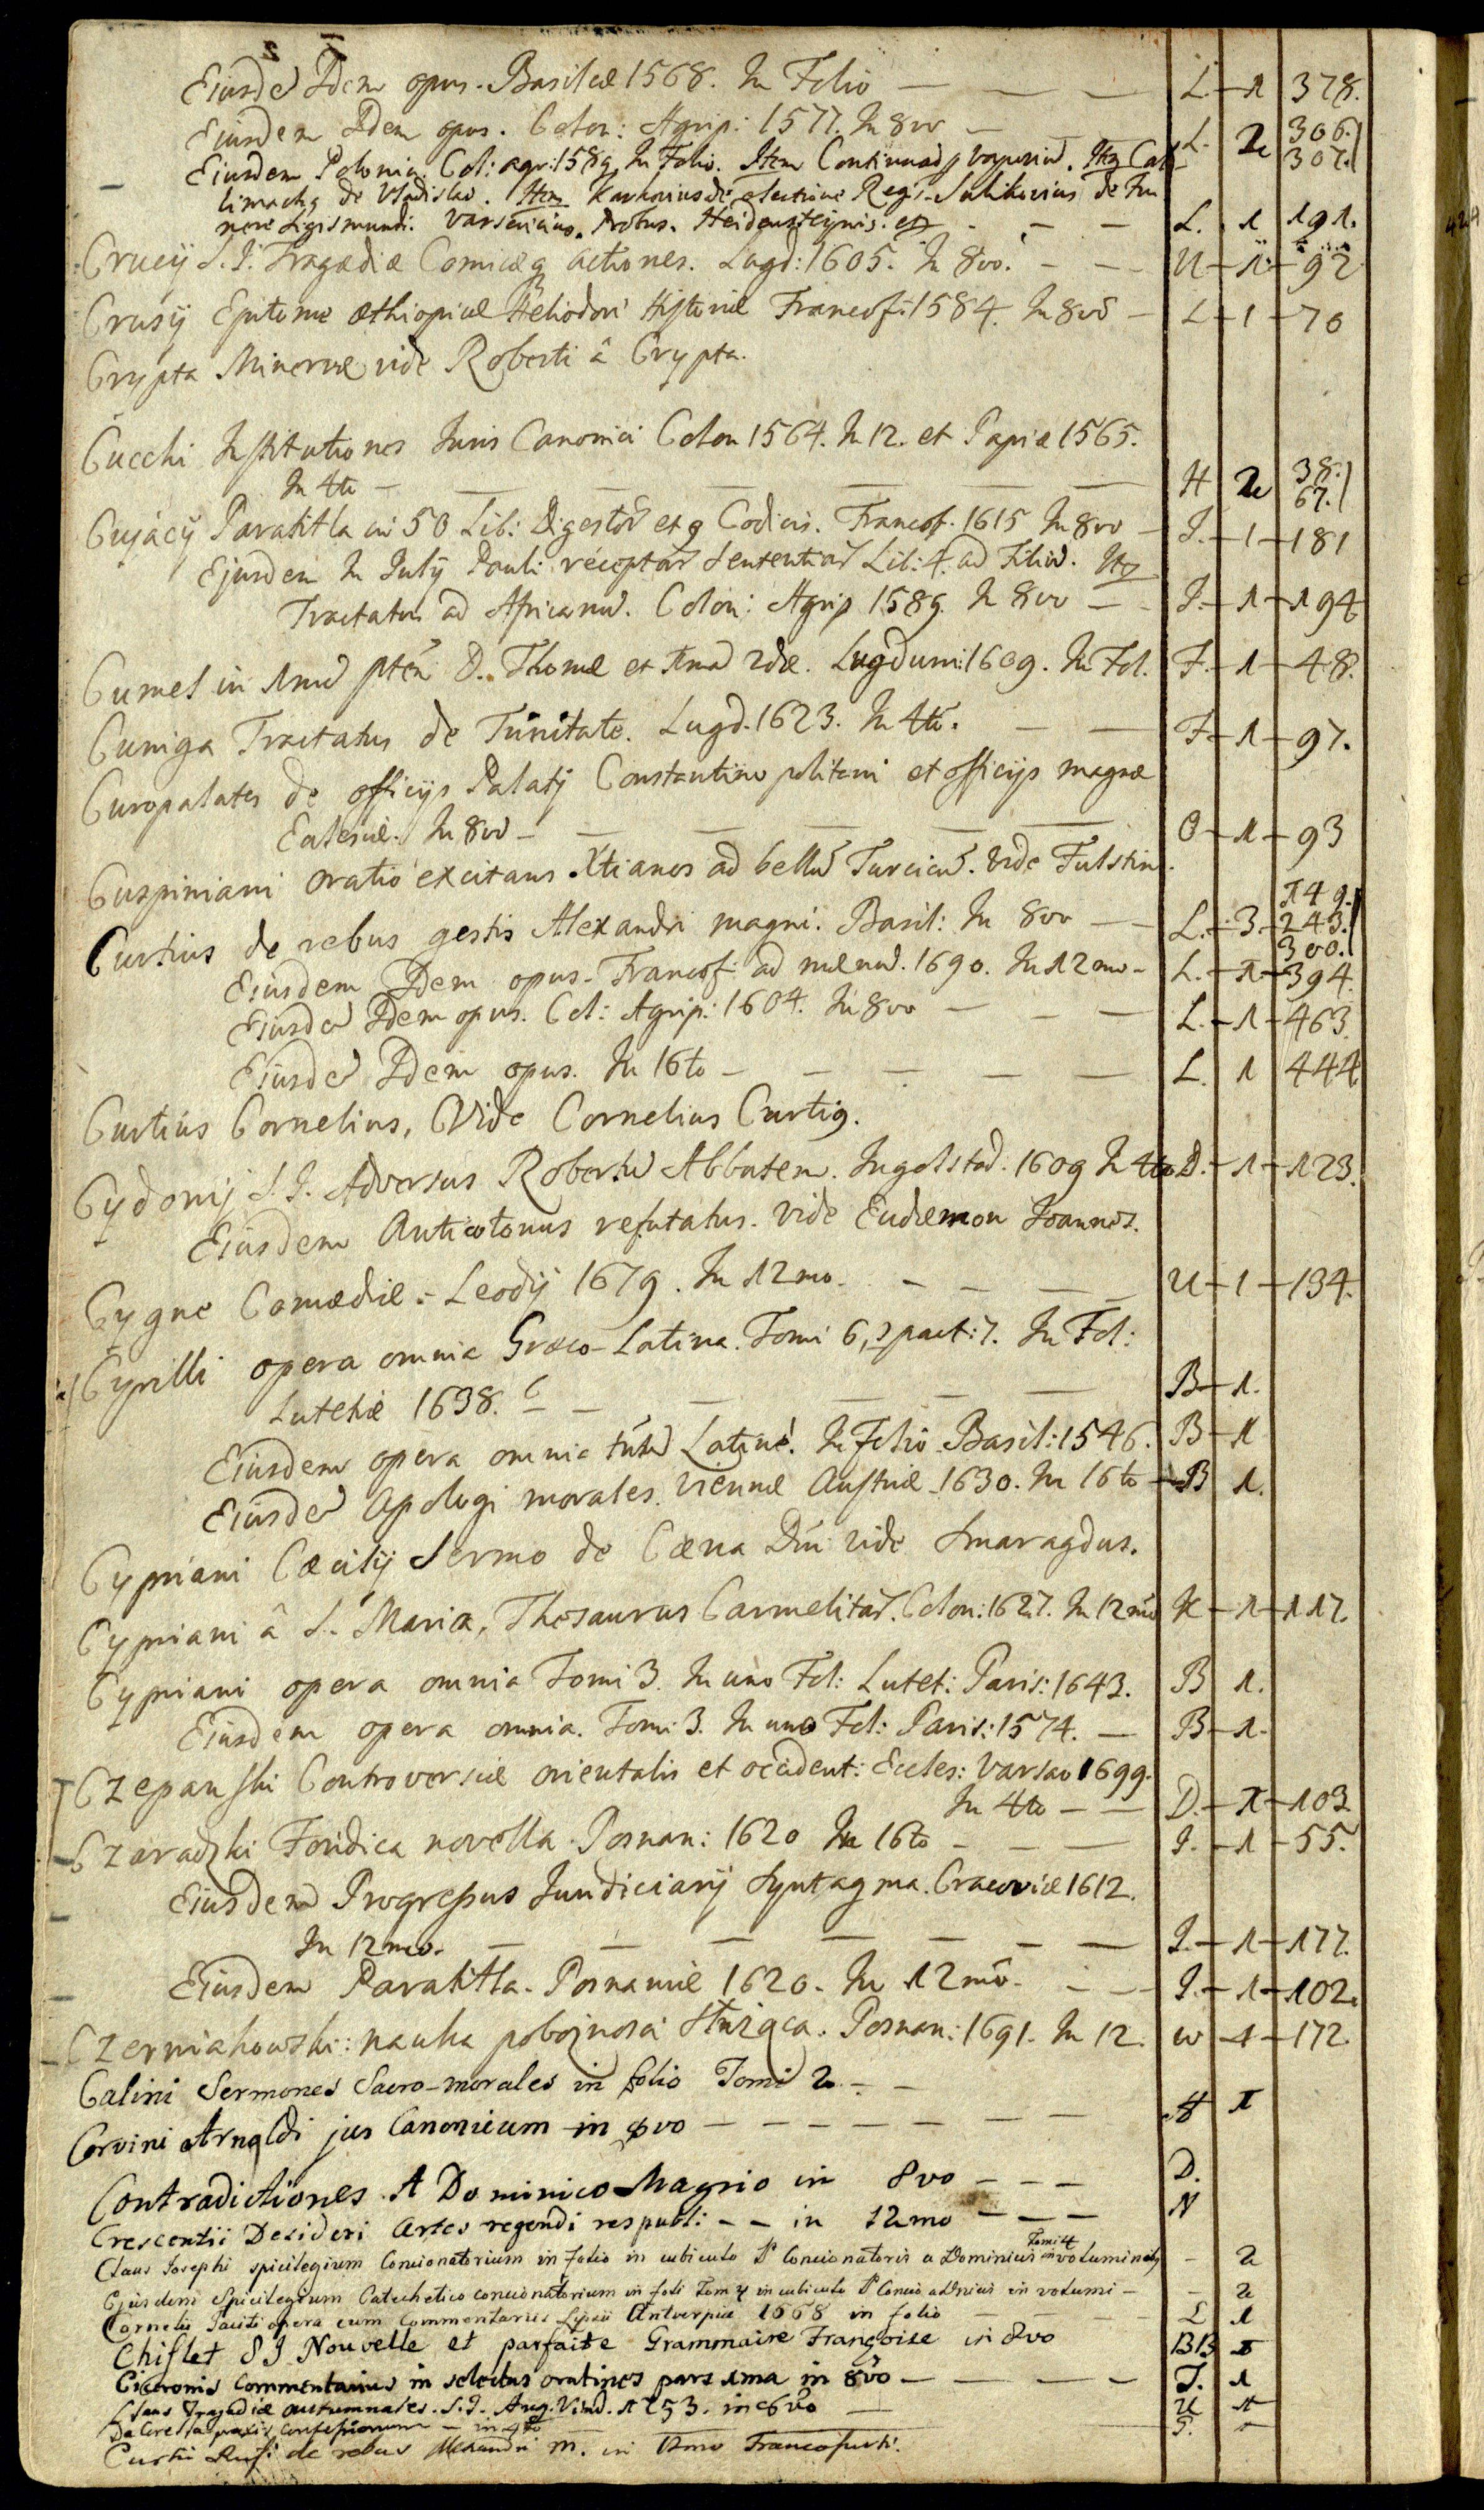 Eiusdē Idem opus. Basileæ 1568. In Folio — L. — 1 378.
Eiusdem Idem opus. Colon: Agrip: 1577. In 8vo — L. 2 306. 307.
Eiusdem Polonia. Col: agr: 1589. In Folio. Item
limachꝫ de Vladislao. Item de electione Regis. Sulikovius de Fu
nere Sigismundi. Varsevicius. Probus. Heidensteynis. etc — L. 1 191.
Crucij S. J. Tragædiæ Comicæq actiones. Lugd: 1605. In 8vo. — U — 1 — 92
Crusij Epitome Æthiopicæ Heliodori Historiæ Francof: 1584. In 8vo — L — 1 — 70
Crypta Minervæ vide Roberti â Crypta.
Cucchi Institutiones Iuris Canonici Colon 1564. In 12. et Papiæ 1565.
In 4to — H 2 38. 67.
Cujacij Paratitla in 50 Lib: Digestor̃ et 9 Codicis. Francof. 1615 In 8vo — J. — 1 — 181
Ejusdem In Julij Pauli receptar̃ Sententiar̃ Lib: 4. ad Filiū. Itꝫ
Tractatus ad Africanū. Colon: Agrip 1589. In 8vo — J. — 1 — 194
Cumel in 1mā ptem D. Thomæ et 1mā 2dæ. Lugduni: 1609. In Fol. F. — 1 — 48.
Cuniga Tractatus de Trinitate. Lugd. 1623. In 4to. — F. — 1 — 97.
Curopalates de officijs Palatij Constantinopolitani et officijs magnæ
Eclesiæ. In 8vo — O — 1 — 93
Cuspiniani oratio excitans Xtianos ad bellū Turcicū. Vide Fulstin.
Curtius de rebus gestis Alexandri magni. Basil: In 8vo — L. — 3 — 149. 243. 300.
Eiusdem Idem opus. Francof: ad mænū. 1690. In 12mo — L. — 1 — 394.
Eiusdē Idem opus. Col: Agrip: 1604. In 8vo — L. — 1 — 463.
Eiusdē Idem opus. In 16to — L. 1 444
Curtius Cornelius, Vide Cornelius Curtiꝫ.
Cydonij S. J. Adversus Robertū Abbatem. Ingolstad. 1609 In 4to D. — 1 — 123.
Eiusdem Anticotonus refutatus. Vide Eudæmon Joannes.
Cygne Comœdiæ. Leodij 1679. In 12mo. — U — 1 — 134.
Cyrilli opera omnia Græco-Latina. Tomi 6, part: 7. In Fol:
Lutetiæ 1638. — B — 1.
Eiusdem opera omnia tātū Latinè. In Folio Basil: 1546. B — 1
Eiusdē Apologi morales. Viennæ Austriæ 1630. In 16to — B 1.
Cypriani Cæcilij Sermo de Cæna Dni vide Smaragdus.
Cypriani â S. Maria, Thesaurus Carmelitar̃. Colon: 1627. In 12mo K — 1 — 117.
Cypriani opera omnia Tomi 3. In uno Fol: Lutet: Paris: 1643. B 1.
Eiusdem opera omnia. Tomi 3. In uno Fol: Paris: 1574. — B — 1.
Czepanski Controversiæ orientalis et occident: Eccles: Varsav 1699.
In 4to — D. — 1 — 103
Czaradzki Foridica novella. Posnan: 1620 In 16to — J. — 1 — 55.
Eiusdem Progressus Iuudiciarij Syntagma. Cracoviæ 1612.
In 12mo. — J. — 1 — 177.
Eiusdem Paratitla. Posnaniæ 1620. In 12mo. — J. — 1 — 102.
Czerniakowski: nauka pobożności służąca. Posnan: 1691. In 12. W — 1 — 172.
Calini Sermones Sacro-morales in folio Tomi 2 — —
Corvini Arnoldi jus Canonicum in 8vo — H 1
Contradictiones. A Dominico Magrio in 8vo — — — D.
Crescentii Desideri Artes regendi respubli: — — in 12mo — — — N
Claus Josephi spicilegium Concionatorium in folio in cubiculo P Concionatoris a Dominicis Tomi 4 in voluminibꝫ — 2
Ejusdem Spicilegium Catechetico concionatorium in foli Tom 4 in cubiculo P Concio a Dnicis in volumi — 2
Cornelii Taciti opera cum Commentariis Lipsii Antverpiæ 1668 in folio — L 1
Chiflet S J Nouvelle et parfaite Grammaire Françoise in 8vo BB 1
Ciceronis Commentarius in selectas orationes pars 1ma in 8vo — T. 1
Claus Tragædiæ autumnales. S. J. Aug. Vind. 1753. in 8vo — U 1
Da Corella praxis Confessionum — in 4to — G.
Curtii Rufi de rebus Alexandri M. in 12mo Francofurti.